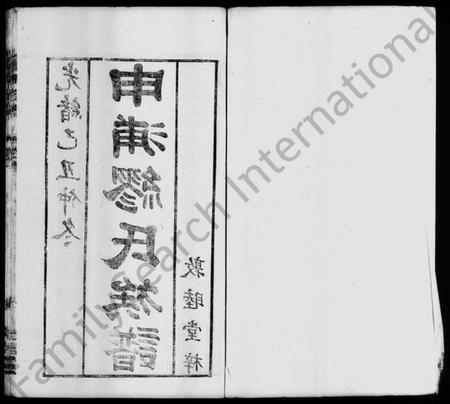 光緒己丑仲冬
申浦繆氏族譜
敦睦堂梓
FamilySearch International